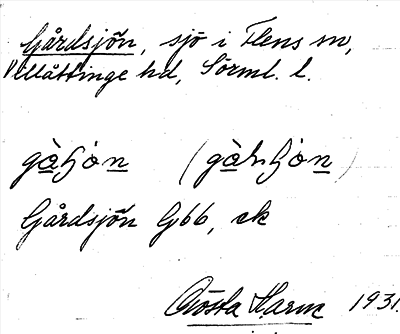 Gårdsjön, sjö i Flens sn,
Villåttinge hd, Sörml. l.
Gårdsjön Gbb, ek
Gösta Harm 1931.